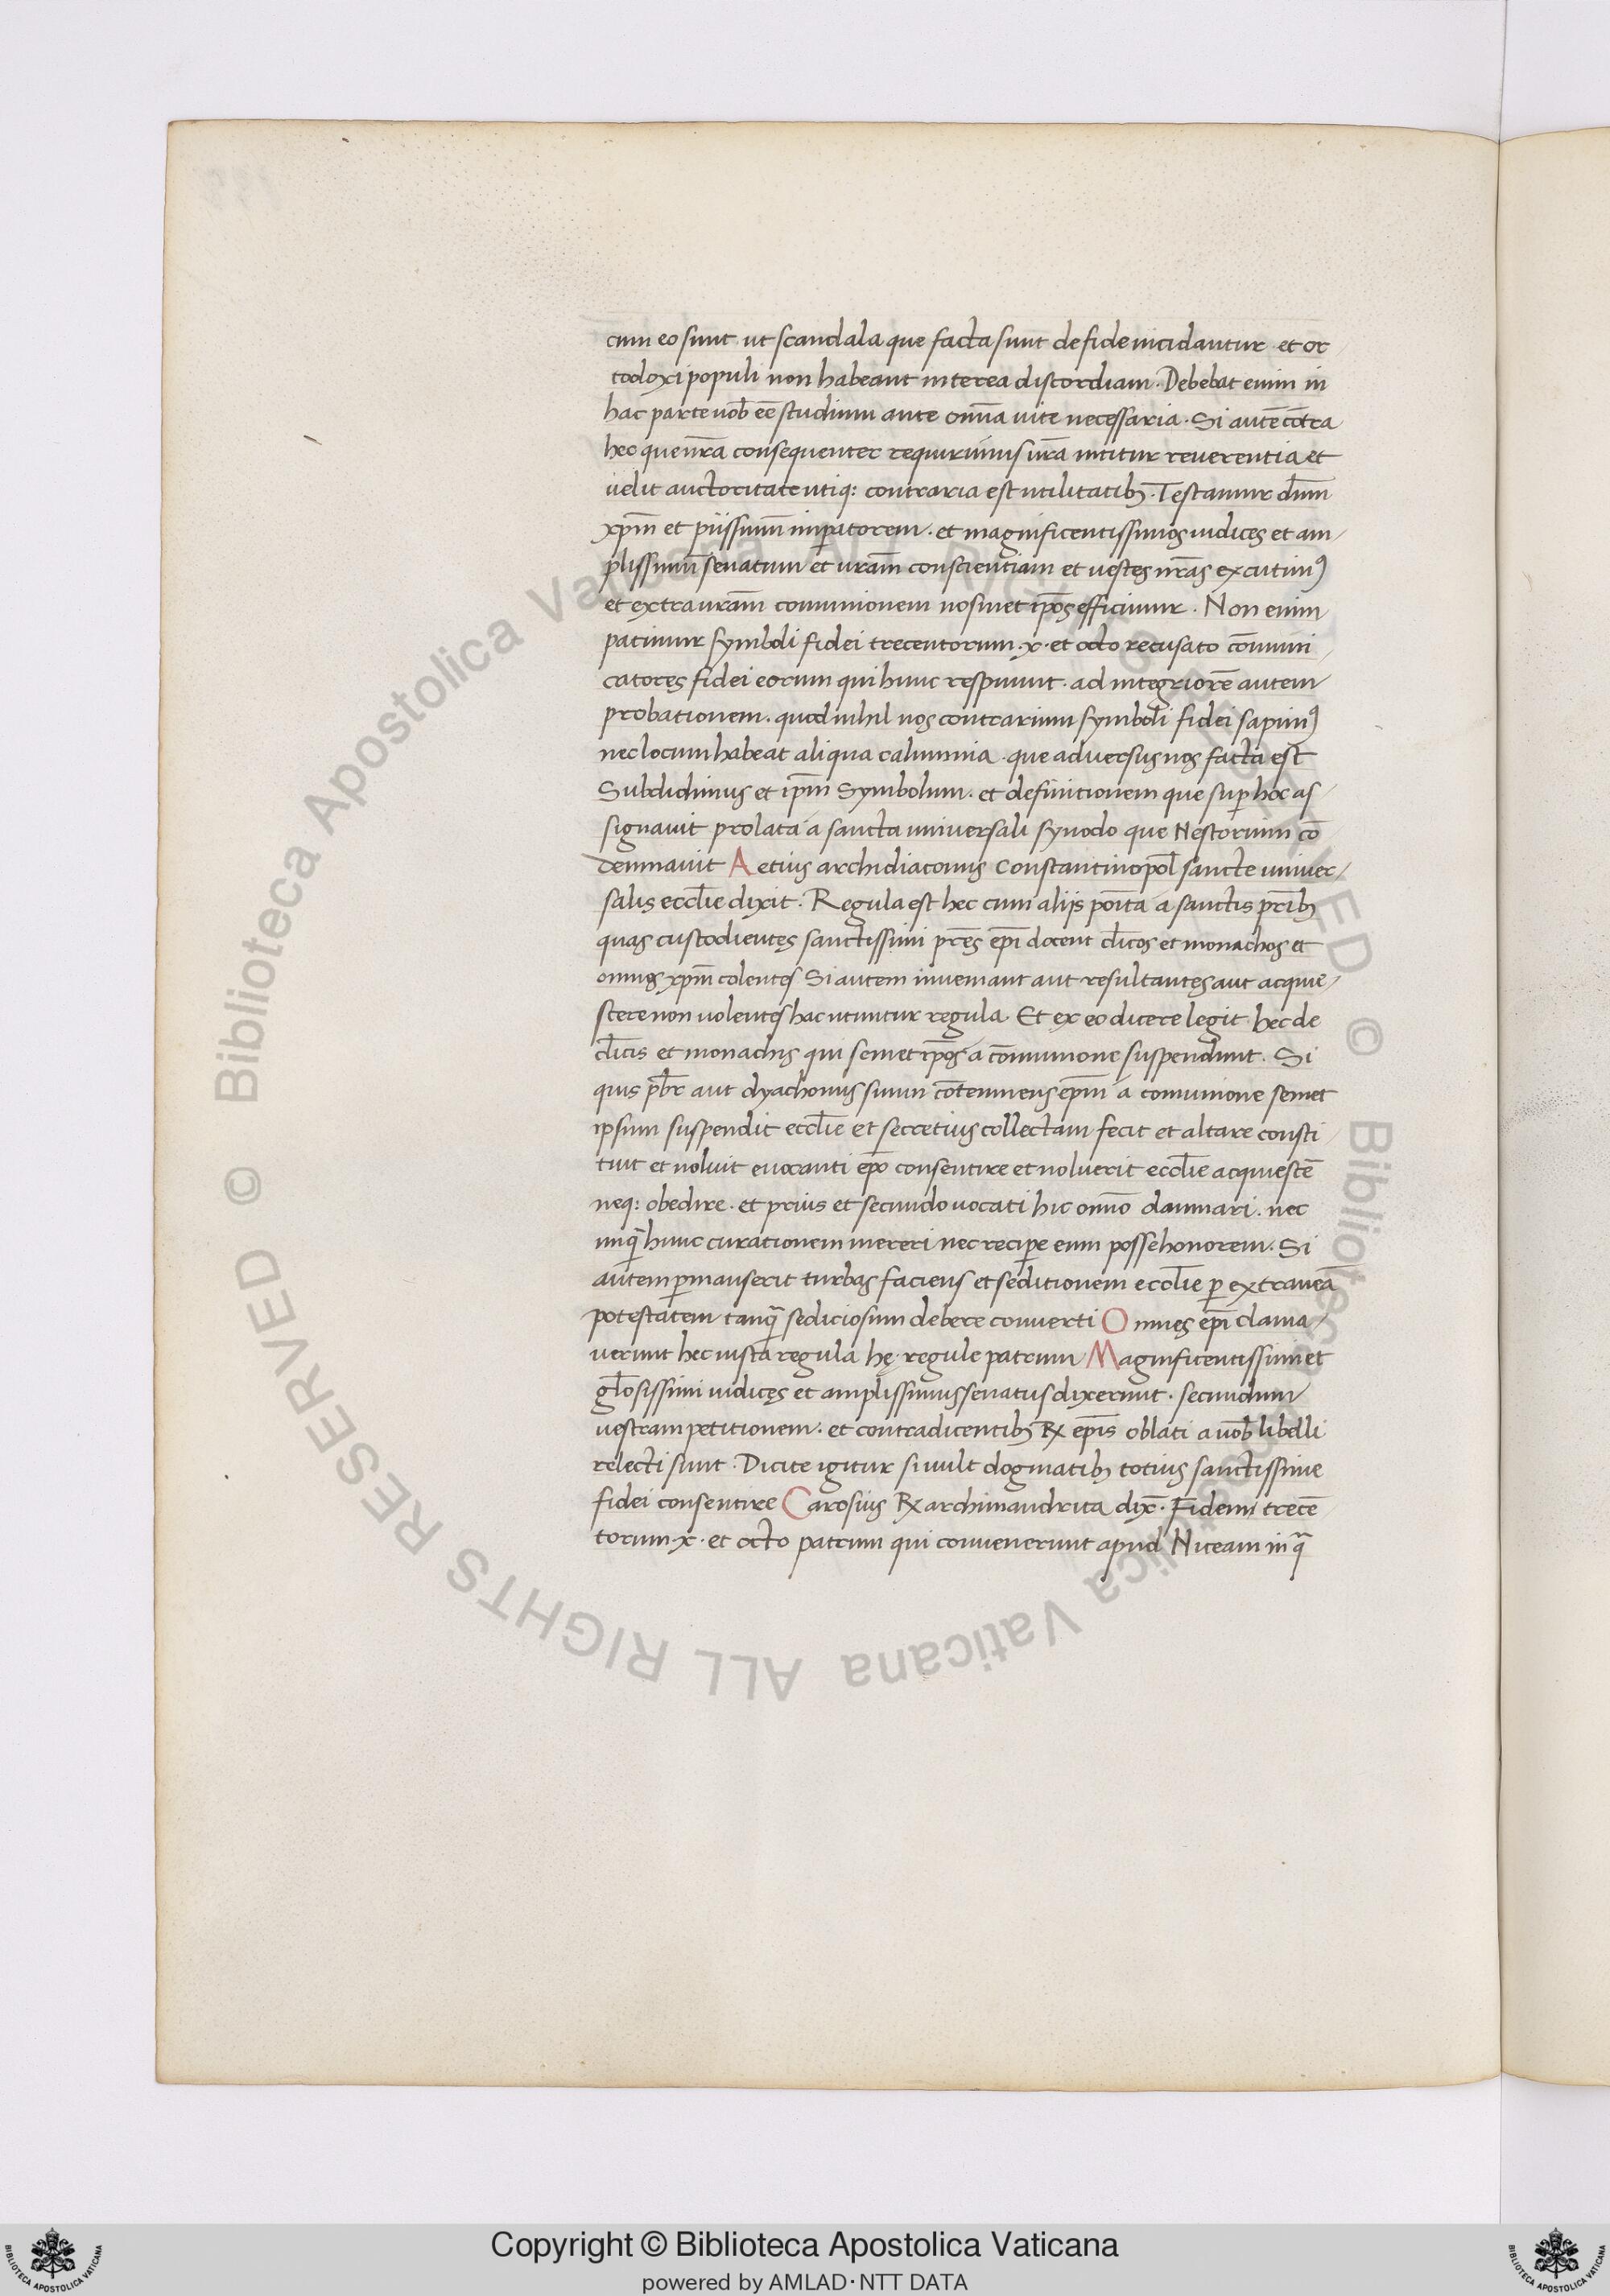 cum eo sunt ut scandala que facta sunt de fide incidantur . et or
todoxi populi non habeant interea discordiam . Debebat enim in
hac parte uob̄ eē studium ante om̄ia uite necessaria . Si autē cōtra
hec que nr̄a consequenter requirimus ur̄a nititur reuerentia et
uelit auctoritate utiq: contraria est utilitatibꝫ . Testamur dn̄m
xp̄m et piissimū imꝑatorem . et magnificentissimos iudices et am
plissimū senatum et ur̄am conscientiam et uestes nr̄as excutimꝰ
et extra ur̄am comunionem nosmet ip̄os efficimur . Non enim
patimur symboli fidei trecentorum . x . et octo recusato cōmuni
catores fidei eorum qui hunc respuunt . ad integriorē autem
probationem . quod nihil nos contrarium symboli fidei sapimꝰ
nec locum habeat aliqua calumnia . que aduersus nos facta est
Subdidimus et ip̄m Symbolum . et definitionem que suꝑ hoc as
signauit prolata a sancta uniuersali synodo que Nestorium cō
demnauit Aetius archidiaconus Constantinopol̄ sancte uniuer
salis eccl̄ie dixit . Regula est hec cum alijs po͞ita a sanctis pr̄ibꝫ
quas custodientes sanctissimi pr̄es ep̄i docent cl̄icos et monachos et
omnes xp̄m colentes Si autem inueniant aut resultantes aut acquie
scere non uolentes hac utuntur regula . Et ex eo dicere legit hec de
cl̄icis et monachis qui semet ip̄os a cōmunione suspendunt . Si
quis pb̄r aut dyachonus suum cōtemnens ep̄m a comunione semet
ipsum suspendit eccl̄ie et secretius collectam fecit et altare consti
tuit et noluit euocanti ep̄o consentire et noluerit eccl̄ie acquiescē
neq: obedire . et prius et secundo uocati hic om̄o damnari . nec
unq̄ hunc curationem mereri nec reciꝑe eum posse honorem . Si
autem ꝑmanserit turbas faciens et seditionem eccl̄ie ꝑ extraneā
potestatem tanq̄ sediciosum debere conuerti Omnes ep̄i clama
uerunt hec iusta regula hę regule patrum Magnificentissimi et
gl̄osissimi iudices et amplissimus senatus dixerunt . secundum
uestram petitionem . et contradicentibꝫ R̄x ep̄is oblati a uob̄ libelli
relecti sunt . Dicite igitur si uult dogmatibꝫ totius sanctissime
fidei consentire Carosius R̄x archimandrita dix̄ . Fidem trecē
torum . x . et octo patrum qui conuenerunt apud Niceam in q̄
Copyright © Biblioteca Apostolica Vaticana
powered by AMLAD·NTT DATA
© Biblioteca Apostolica Vaticana ALL RIGHTS RESERVED
© Biblioteca Apostolica Vaticana ALL RIGHTS RESERVED
BIBLIOTECA APOSTOLICA VATICANA
BIBLIOTECA APOSTOLICA VATICANA